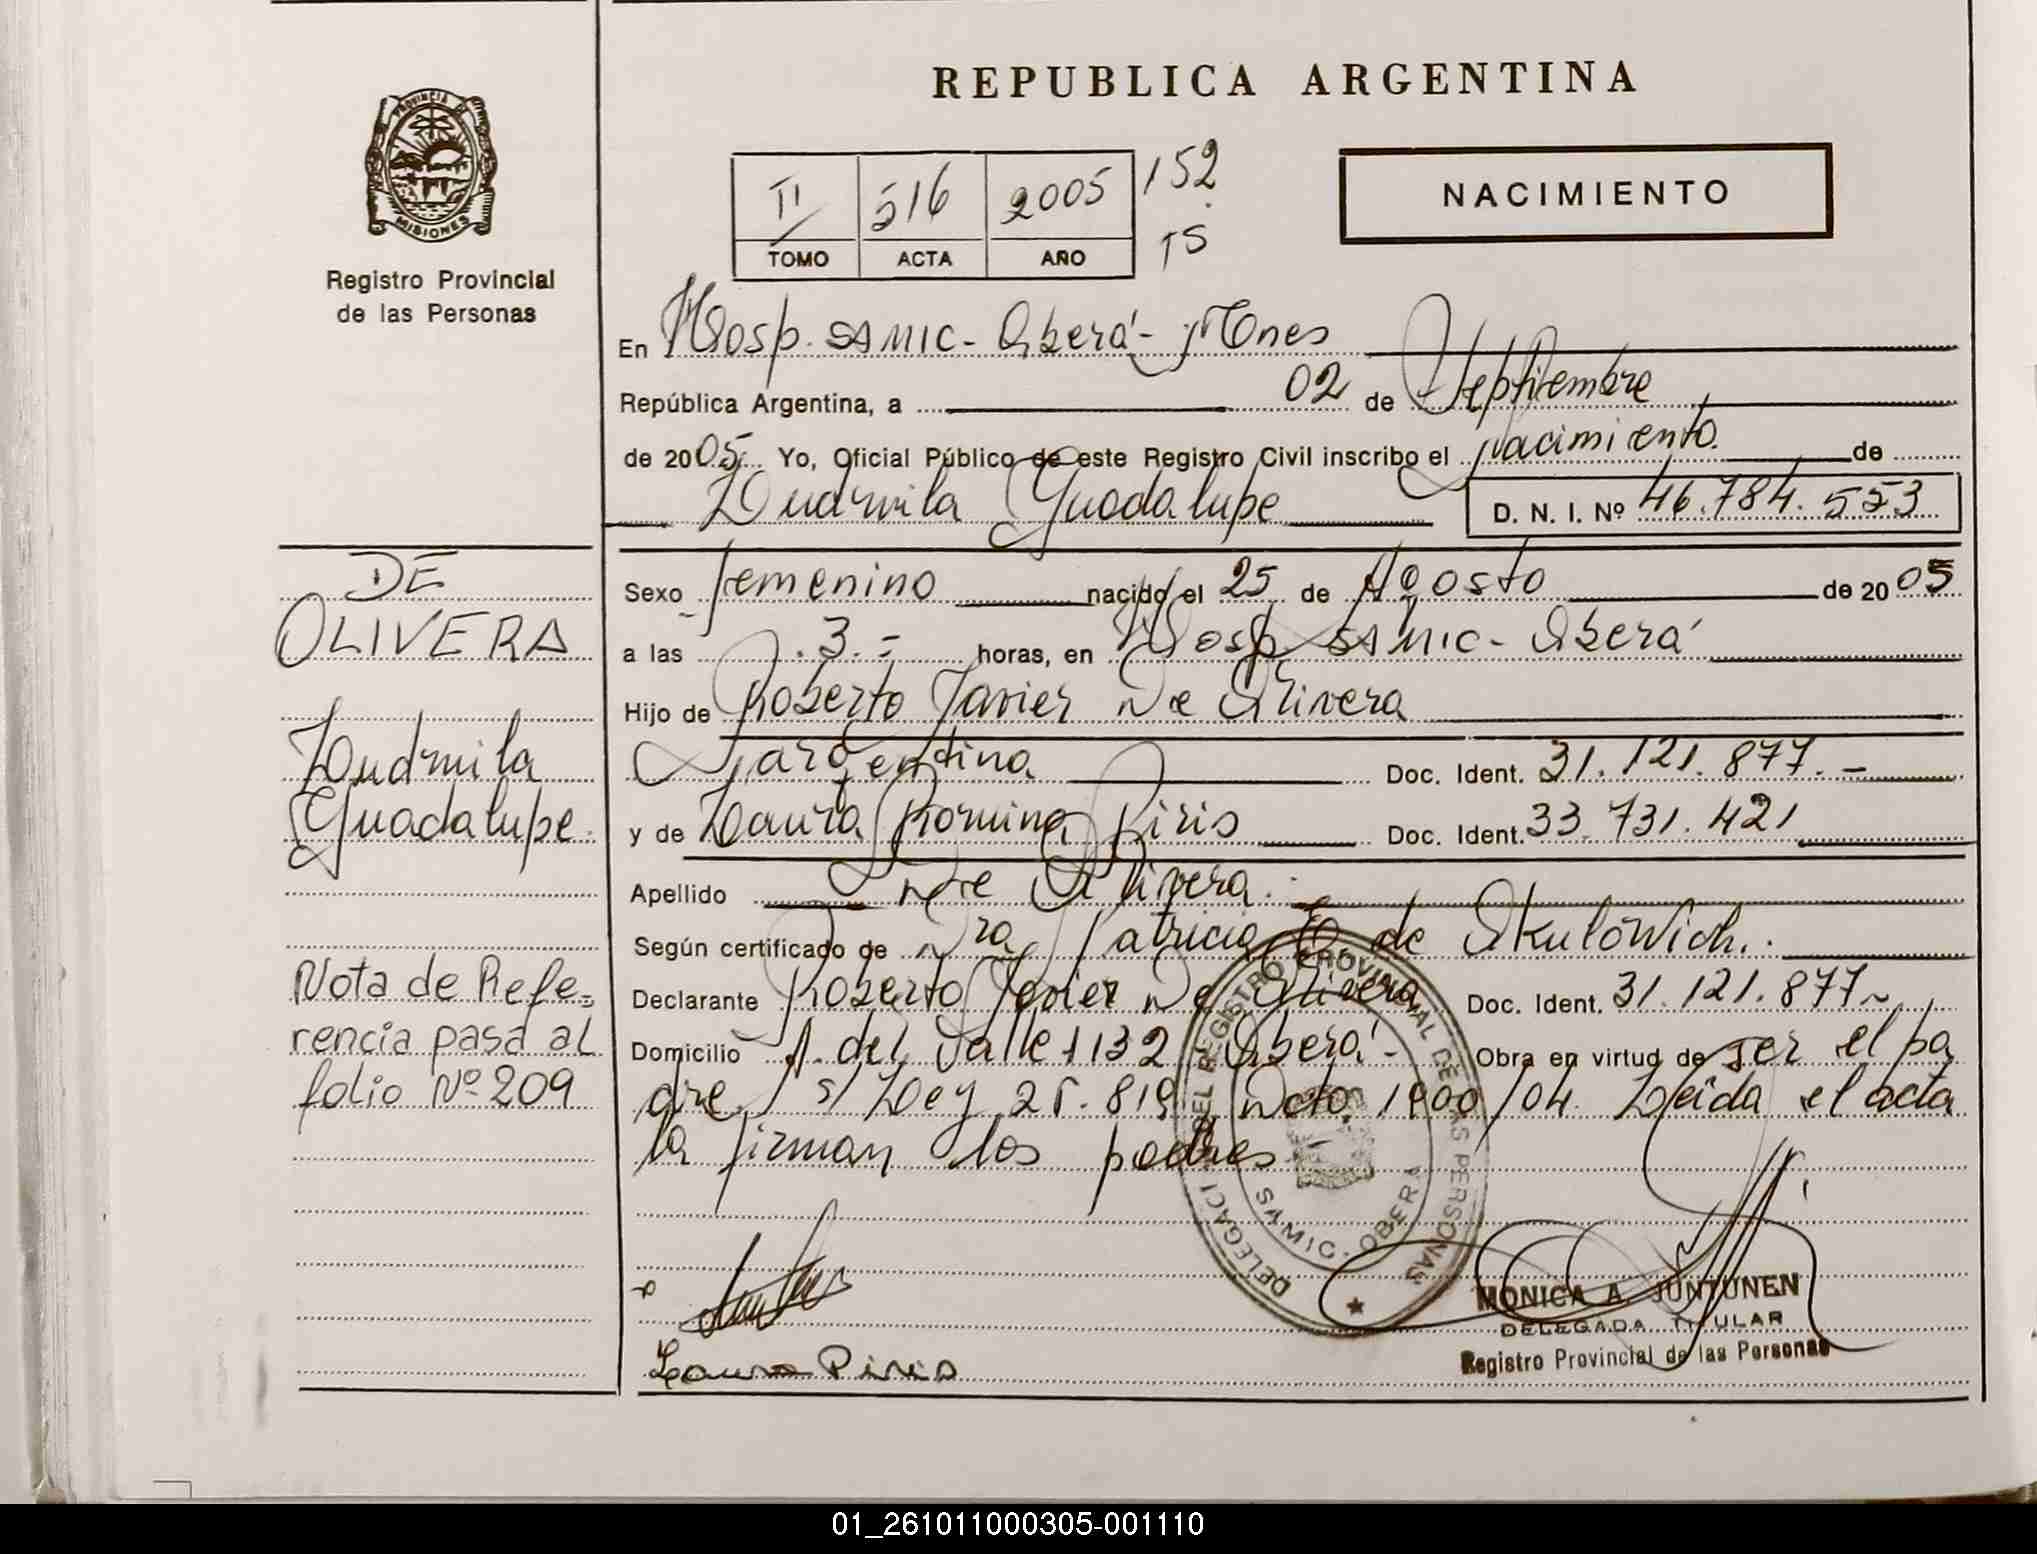 REPUBLICA ARGENTINA
PROVINCIA DE
MISIONES
Registro Provincial
de las Personas
II 516 2005 152
TOMO ACTA AÑO TS
NACIMIENTO
En Hosp. SAMIC - Oberá - Mnes
República Argentina, a 02 de Septiembre
de 2005 Yo, Oficial Público de este Registro Civil inscribo el nacimiento de
Ludmila Guadalupe D. N. I. Nº 46.784.553
Sexo femenino nacido el 25 de Agosto de 2005
a las 3.= horas, en Hosp. SAMIC - Oberá
Hijo de Roberto Javier De Olivera
argentina Doc. Ident. 31.121.877.-
y de Laura Romina Piris Doc. Ident. 33.731.421
Apellido De Olivera.
Según certificado de Dra Patricia de Skulowich.
Declarante Roberto Javier De Olivera Doc. Ident. 31.121.877
Domicilio A. del Valle 1132 Oberá - Obra en virtud de ser el pa
dre. s/ Ley 25.819 Dcto. 1900/04 Leída el acta
la firman los padres
DE
OLIVERA
Ludmila
Guadalupe.
Nota de Refe-
rencia pasa al
folio Nº 209
DEL REGISTRO PROVINCIAL DE LAS PERSONAS
SAMIC - OBERA
Laura Piris
MONICA A. JUNTUNEN
DELEGADA TITULAR
Registro Provincial de las Personas
01_261011000305-001110